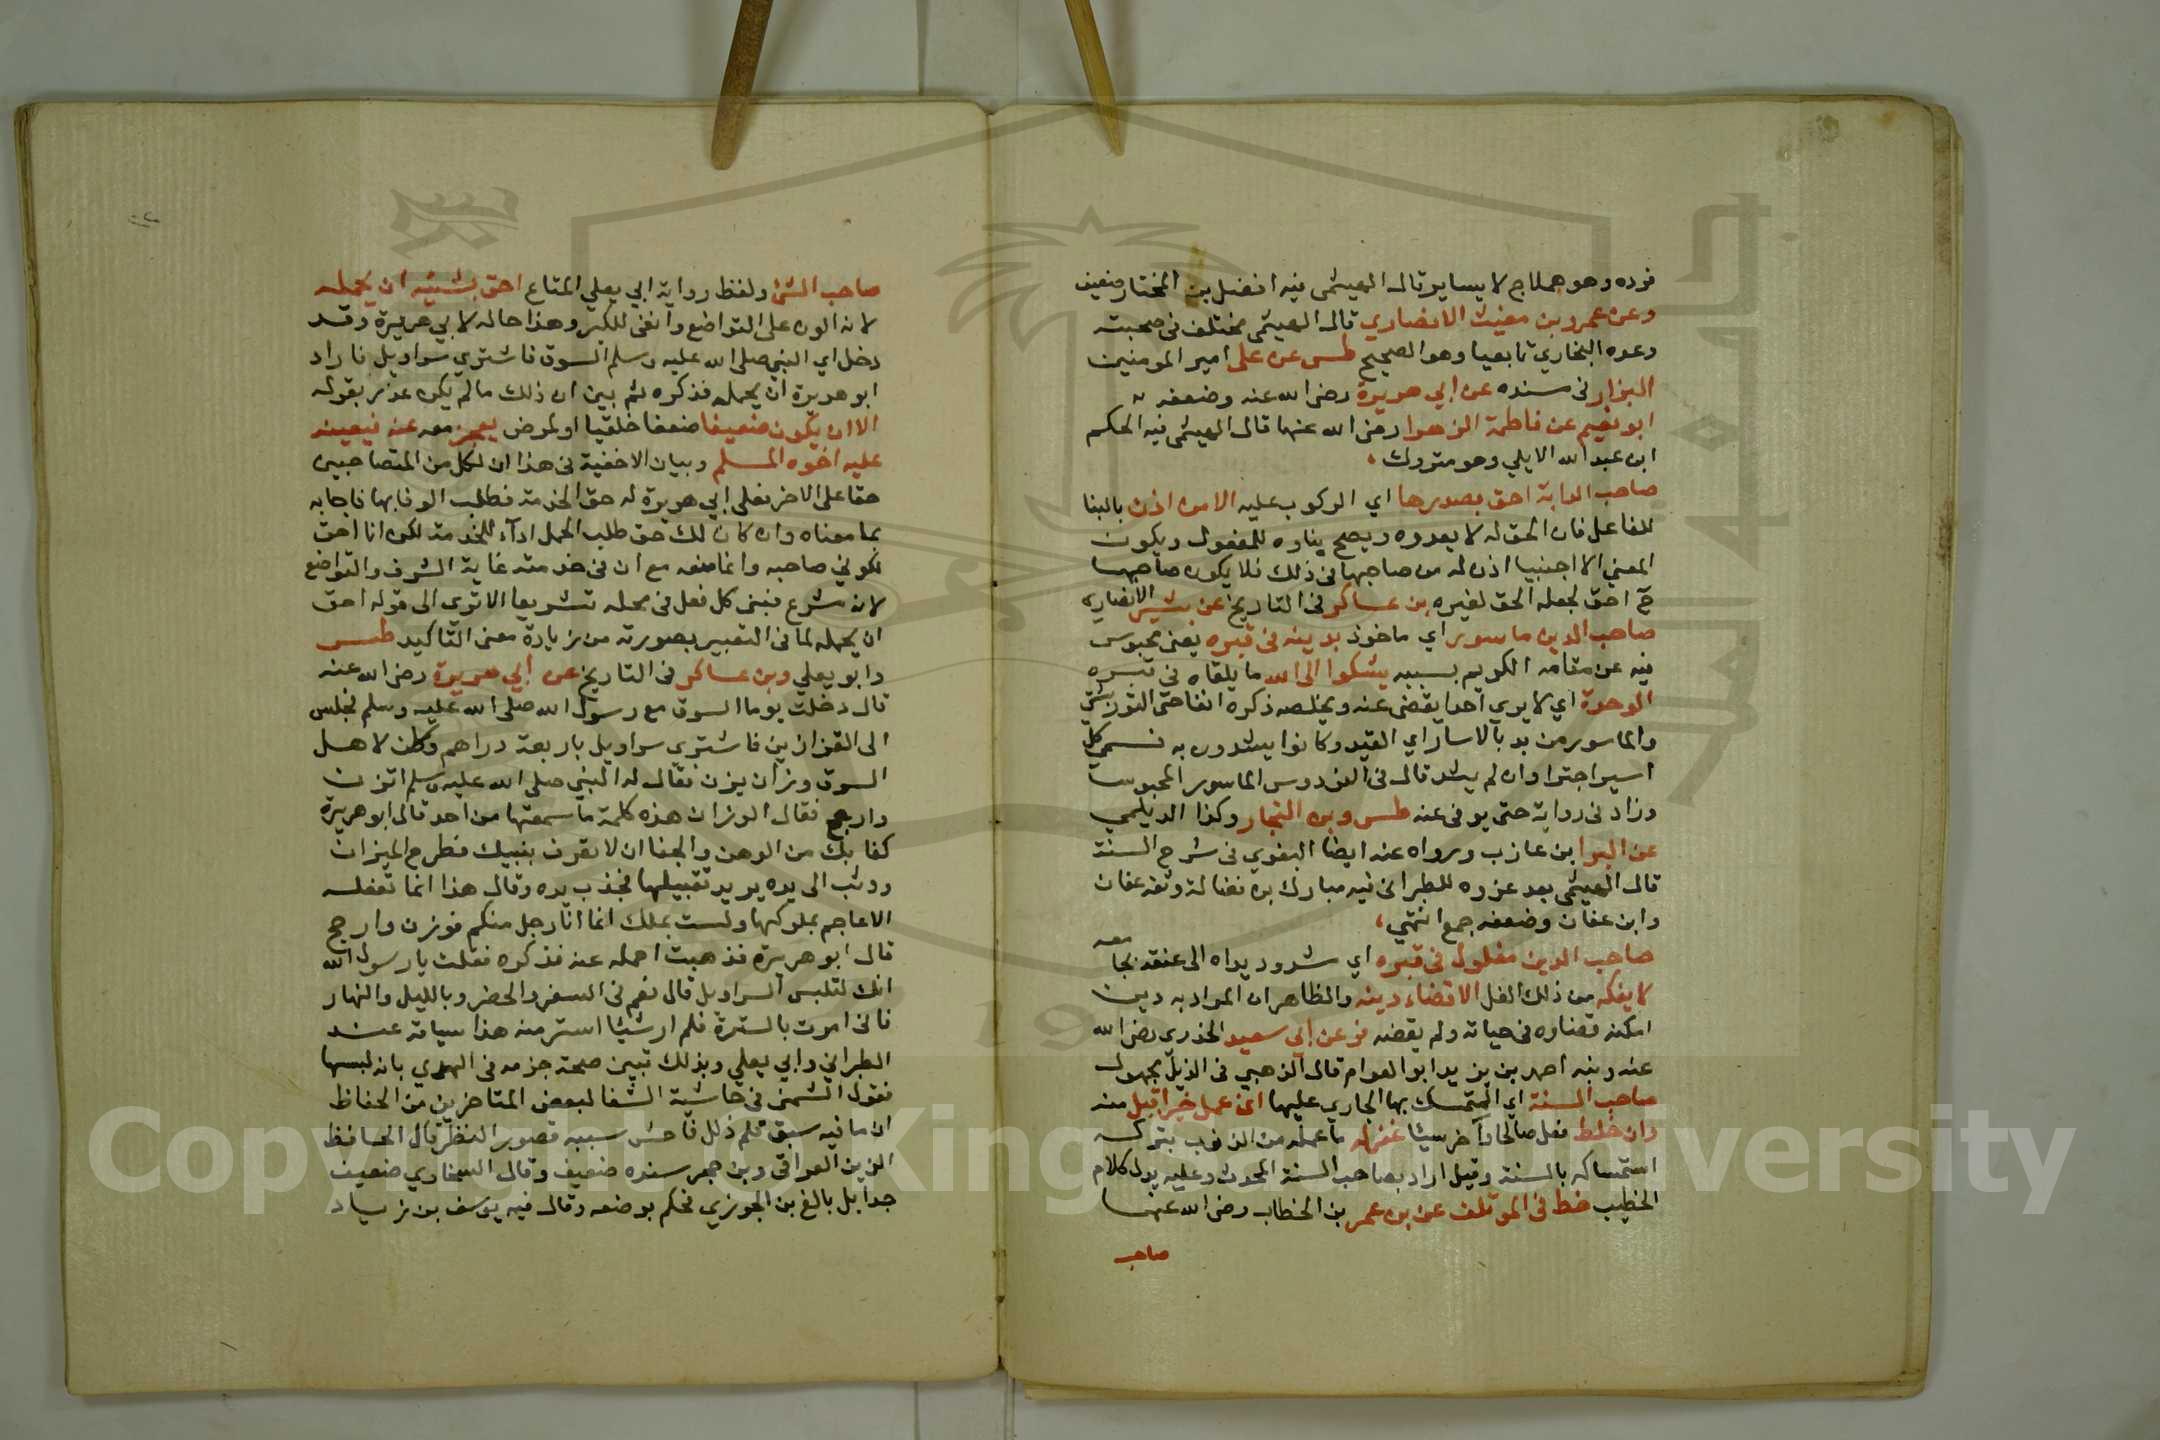 فرده وهو هملاج لا يساير قال الهيثمي فيه افضل بن المختار ضعيف
وعن عمرو بن مغيث الانصاري قال الهيثمي مختلف في صحبته
وعده البخاري تابعيا وهو الصحيح طس عن علي امير المومنين
البزار في مسنده عن ابي هريرة رضي الله عنه وضعفه
ابو نعيم عن فاطمة الزهرا رضي الله عنها قال الهيثمي فيه الحكم
ابن عبد الله الايلي وهو متروك
صاحب الدابة احق بصدرها اي الركوب عليه الا من اذن بالبنا
للفاعل فان الحق له لا يعدوه ويصح بناوه للمفعول ويكون
المعني الا اجنبيا اذن له من صاحبها في ذلك فلا يكون صاحبها
ح احق لجعله الحق لغيره بن عساكر في التاريخ عن بشير الانصاري
صاحب الدين ماسور اي ماخوذ بدينه في قبره يعني محبوس
فيه عن مقامه الكريم بسببه يشكوا الى الله ما يلقاه في قبره
الوحدة اي لا يري احدا يقضي عنه ويخلصه ذكره القاضي التوربشتي
والماسور من يد بالاسار اي القيد وكانوا يشدون به فسمي كل
اسير اجترا وان لم يشد قال في الفردوس الماسور المحبوس
وزاد في رواية حتى يوفى عنه طس وبن النجار وكذا الديلمي
عن البرا بن عازب ورواه عنه ايضا البغوي في شرح السنة
قال الهيثمي بعد عزوه للطبراني فيه مبارك بن فضالة وثقه عفان
وابن عفان وضعفه جمع انتهي
صاحب الدين مغلول في قبره اي مشدود يداه الى عنقه بجامعه
لا يفكه من ذلك الغل الا قضاء دينه والظاهر ان المراد به دين
امكنه قضاوه في حياته ولم يقضه فر عن ابي سعيد الخدري رضي الله
عنه وفيه احمد بن يزيد ابو العوام قال الذهبي في الذيل مجهول
صاحب السنة اي المتمسك بها الجاري عليها ان عمل خيرا قبل منه
وان خلط فعل صالحا وآخر سيئا غفر له ما عمله من الذنوب ببركه
استمساكه بالسنة وقيل اراد بصاحب السنة المحدث وعليه يدل كلام
الخطيب خط في الموتلف عن بن عمر بن الخطاب رضي الله عنهما
صاحب
صاحب الشئ ولفظ رواية ابي يعلي المتاع احق بشيئه ان يحمله
لانه الون على التواضع وانفى للكبر وهذا حاله لابي هريرة وقد
دخل اي النبي صلى الله عليه وسلم السوق فاشتري سراويل فاراد
ابو هريرة ان يحمله فذكره ثم بين ان ذلك ما لم يكن عذر بقوله
الا ان يكون ضعيفا ضعفا خلقيا او لمرض يعجز معه عنه فيعينه
عليه اخوه المسلم وبيان الاحقية في هذا ان لكل من المتصاحبين
حقا على الاخر فعلى ابي هريرة له حق الخدمة فطلب الوفا بها فاجابه
بما معناه وان كان لك حق طلب الحمل اداء للخدمة لكن انا احق
لكوني صاحبه وانما منعه مع ان في خدمته غاية الشرف والتواضع
لانه مشرع فبنى كل فعل في محله تشريعا الا تري الى قوله احق
ان يحمله لما في التعبير بصورته من زيادة معنى التاكيد طس
وابو يعلي وبن عساكر في التاريخ عن ابي هريرة رضي الله عنه
قال دخلت يوما السوق مع رسول الله صلى الله عليه وسلم فجلس
الى القزازين فاشتري سراويل باربعة دراهم وكان لاهل
السوق وزان يزن فقال له النبي صلى الله عليه وسلم اتزن
وارجح فقال الوزان هذه كلمة ما سمعتها من احد قال ابو هريرة
كفا بك من الوهن والجفا ان لا تعرف بنبيك فطرح الميزان
ووثب الى يده يريد تقبيلها فجذب يده وقال هذا انما تفعله
الاعاجم بملوكها ولست بملك انما انا رجل منكم فوزن وارجح
قال ابو هريرة فذهبت احمله عنه فذكره فقلت يا رسول الله
انك لتلبس السراويل قال نعم في السفر والحضر وبالليل والنهار
فاني امرت بالسترة فلم ار شيئا استر منه هذا سياقه عند
الطبراني وابي يعلي وبذلك تبين صحة جزمه في الهدي بانه لبسها
فقول الشمني في حاشية الشفا لبعض المتاخرين من الحفاظ
ان ما فيه سبق قلم ذلل فاحش سببه قصور النظر قال الحافظ
الزين العراقي وبن حجر سنده ضعيف وقال السخاوي ضعيف
جدا بل بالغ بن الجوزي فحكم بوضعه وقال فيه يوسف بن زياد
Copyright © King Saud University